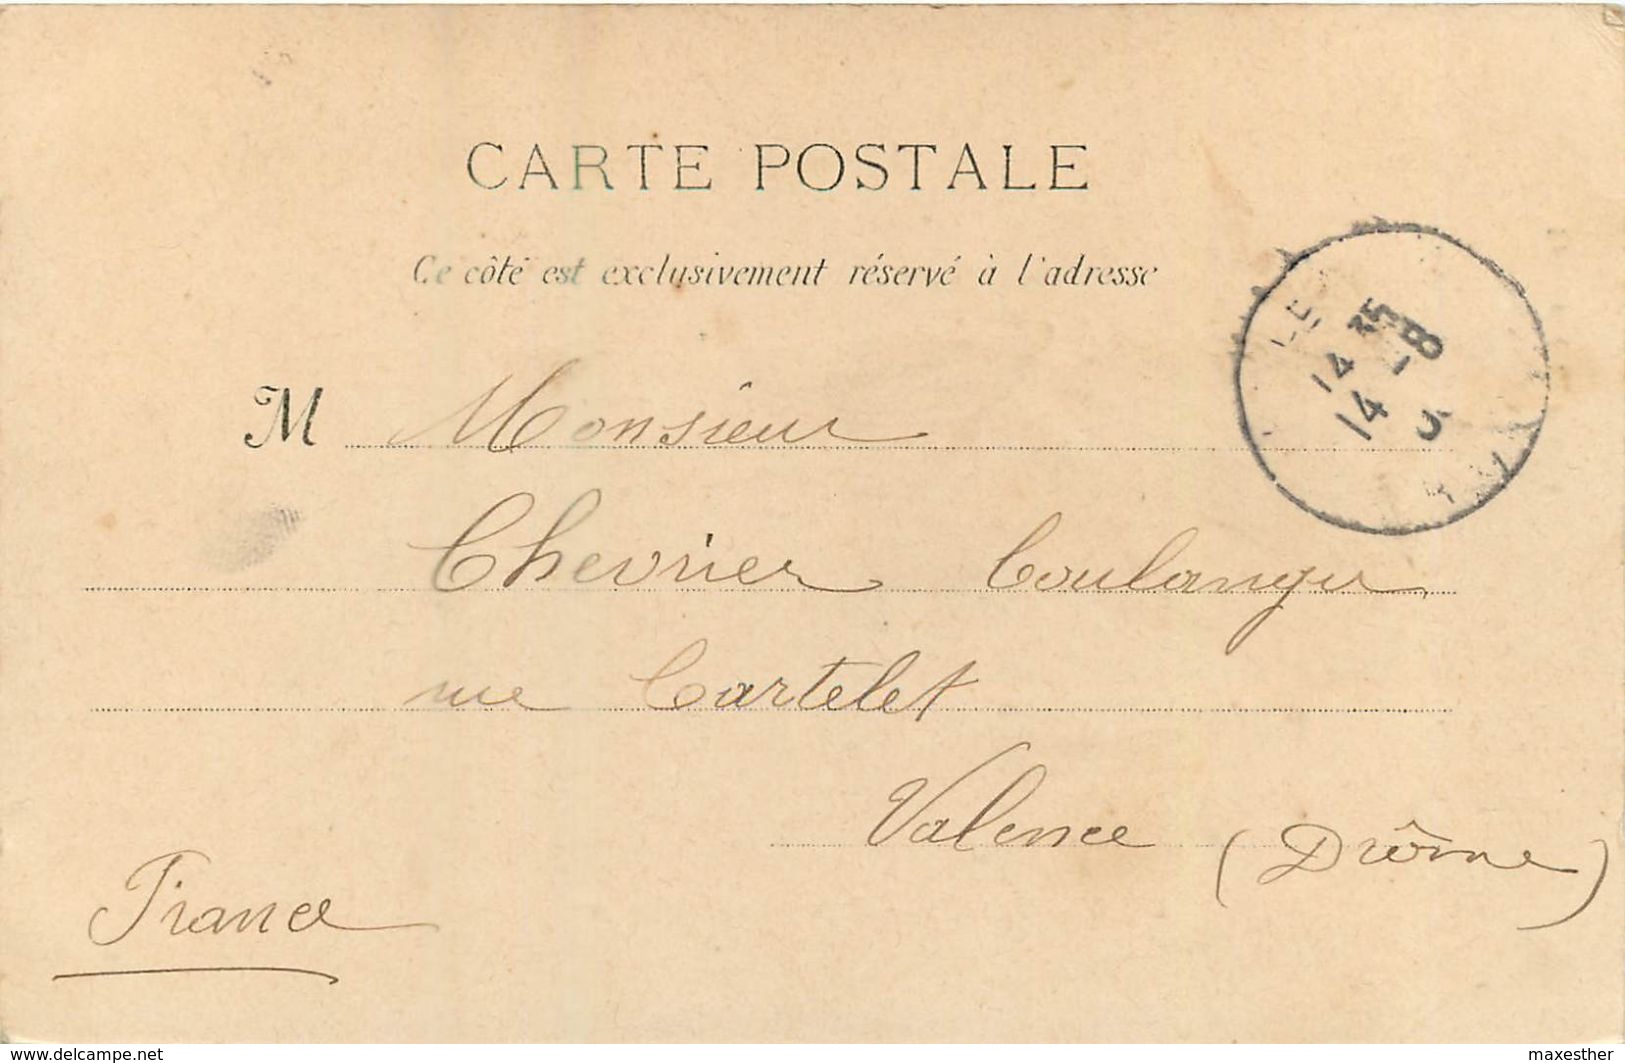 CARTE POSTALE
Ce côté est exclusivement réservé à l'adresse
M Monsieur
Chevrier Coulanger
rue Cartelet
Valence (Drôme)
France
14 35
14 -8
www.delcampe.net
maxesther